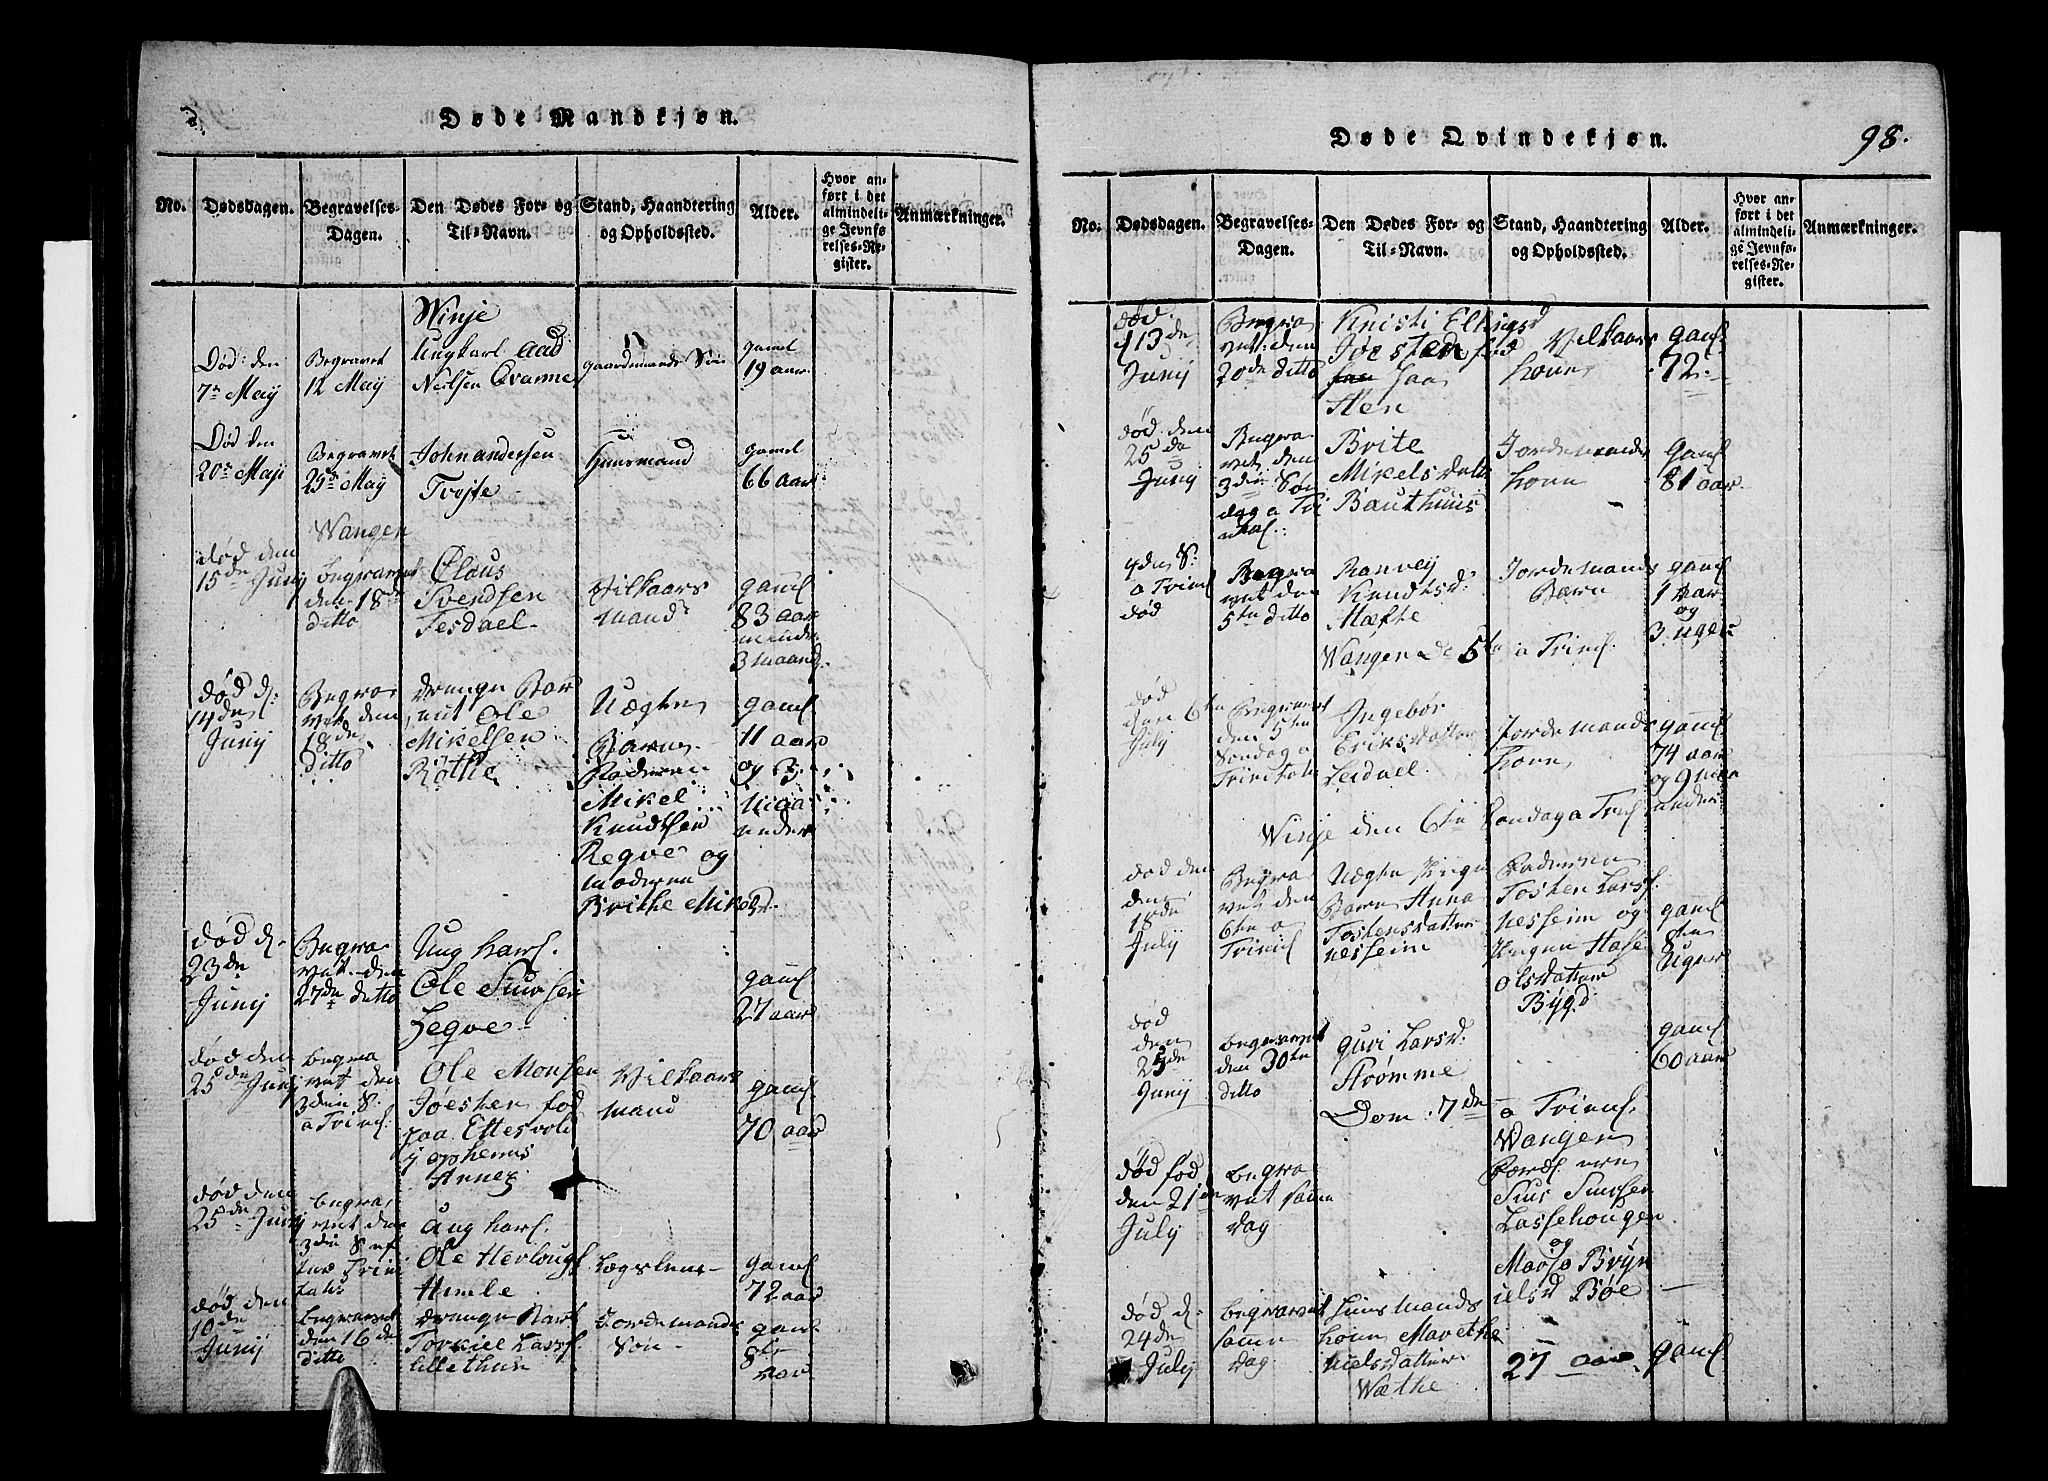 Døde Mandkjøn.
No.
Dødsdagen.
Begravelses-
Dagen.
Den Dødes For- og
Til-Navn.
Stand, Haandtering
og Opholdssted.
Alder.
Hvor an-
ført i det
almindeli-
ge Jevnfø-
relses-Re-
gister.
Anmærkninger.
Winje
Død: den
7de Maij
Begravet
12 Maij
Ungkarl Aad
Nielsen Qvarme
gaardmands Søn
gaml
19 aar
Død den
20de Maji
Begravet
29de Maij
John andersen
Tvojte
Huusmand
gamel
66 aar
Wangen
død den
15de Junij
begravet
den 18de
ditto
Claus
Svendsen
Tesdael
Vilkaars
mand
gaml
83 aar
mindr
3 maand
død d:
14de
Junij
Begra
vet den
18de
ditto
drenge Bar
net Ole
Mikelsen
Röthe
Uægte
Barn
Faderen
Mikel
Knudsen
Reqve og
moderen
Brithe Mikelsd.
gaml
11 aar
og
maa
neder
død d.
23de
Junij
Begra
vet den
27de ditto
Ung karl.
Ole Siursen
Leqve
gaml
27 aar
død den
25de Junij
begra
vet den
3die S.
a Trinit.
Ole Monsen
Jøesten fød
paa Ettesvold
Vilkaars
mand
gaml
70 aar
død den
25de Junij
begra
vet den
3die S ef
ter Trini
tatis
Ung karl.
Ole Herlougs
Himle
Lægslem
gaml
72 aar
død den
10de
Junij
begravet
den 16de
ditto
drenge Barn
Torkiel Lars
Lillethun
Jordemands
Søn
gaml
8te
aar
Døde Qvindekjøn.
98.
No.
Dødsdagen.
Begravelses-
Dagen.
Den Dødes For- og
Til-Navn.
Stand, Haandtering
og Opholdssted.
Alder.
Hvor an-
ført i det
almindeli-
ge Jevnfø-
relses-Re-
gister.
Anmærkninger.
død
d 13de
Junij
Begra
vet den
20de ditto
Kristi Elkingsd
Jøesten fød
paa
Hen
Vilkaars
kone
gaml
72
død den
25de
Junij
Begra
vet den
3die Søn
dag a Tri
nitat.
Brite
Mikelsdatter
Bauthuus
Jordemands
kone
gaml
81 aar
4den S:
a Trinit
død
Begra
vet den
5te ditto
Ranvey
Knudsd:
Mæfte
Jordemands
Barn
gaml
1 aar
og
3 uger
Wangen do 5te a Trinit.
død
den 6te
July
Begravet
den 5te
Søndag a
Trinitatis
Ingebør
Eriksdatter
Lesdael
Jordemands
kone
gaml
74 aar
og 9 maa
neder
Winje den 6te Søndag a Trinit
død den
den
18de
Julij
Begra
vet den
6te a
Trinit
Uægte Pige
Barn Anna
Tostensdatter
nesheim
Faderen
Tosten Larss.
nesheim og
Olsdatter
Bygd
gaml
8te
uger
død
den
25de
Junij
begravet
den 30te
ditto
guri Larsd.
Strømme
gaml
60 aar
Dom. 7de a Trinit.
Wangen
død fød
den 21de
July
begra
vet samme
dag
Siur Siursen
Lassehougen
og
Bryn
ielsd Bøe
død d.
24de
July
begravet
samme
dag
huusmands
kone Marethe
nielsdatter
Wæthe
27 aar
gaml